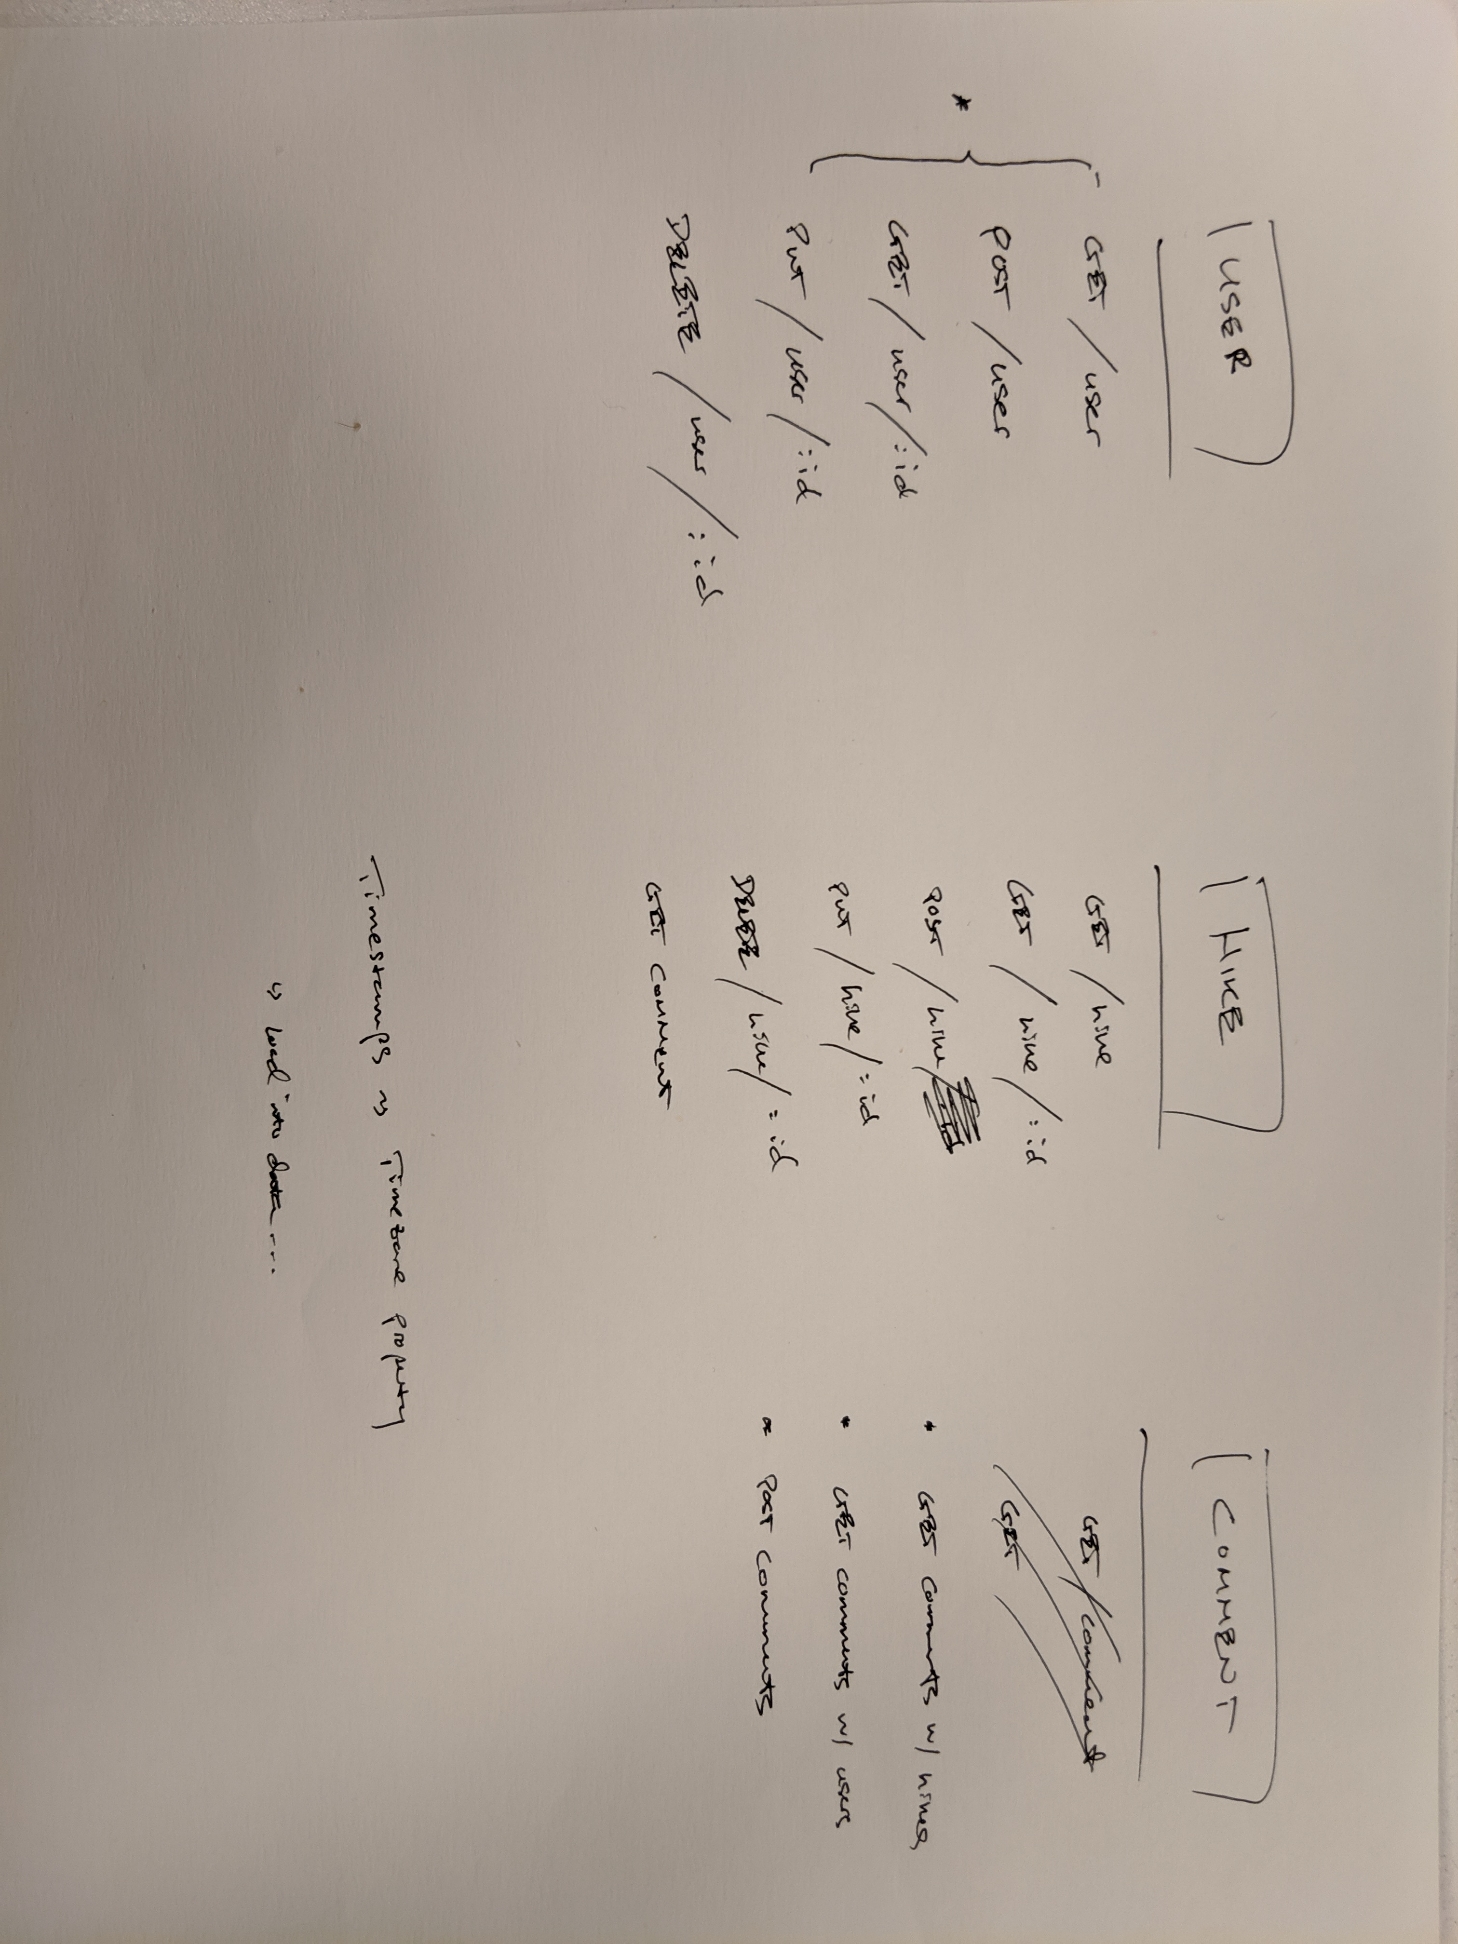 USER
GET /user
POST /user
GET /user/:id
PUT /user/:id
DELETE /user/:id
*
HIKE
GET /hike
GET /hike/:id
POST /hike
PUT /hike/:id
DELETE /hike/:id
GET COMMENT
COMMENT
GET /comment
GET
* GET comments w/ hikes
* GET comments w/ users
* POST comments
Timestamps Timezone property
↳ load into data....